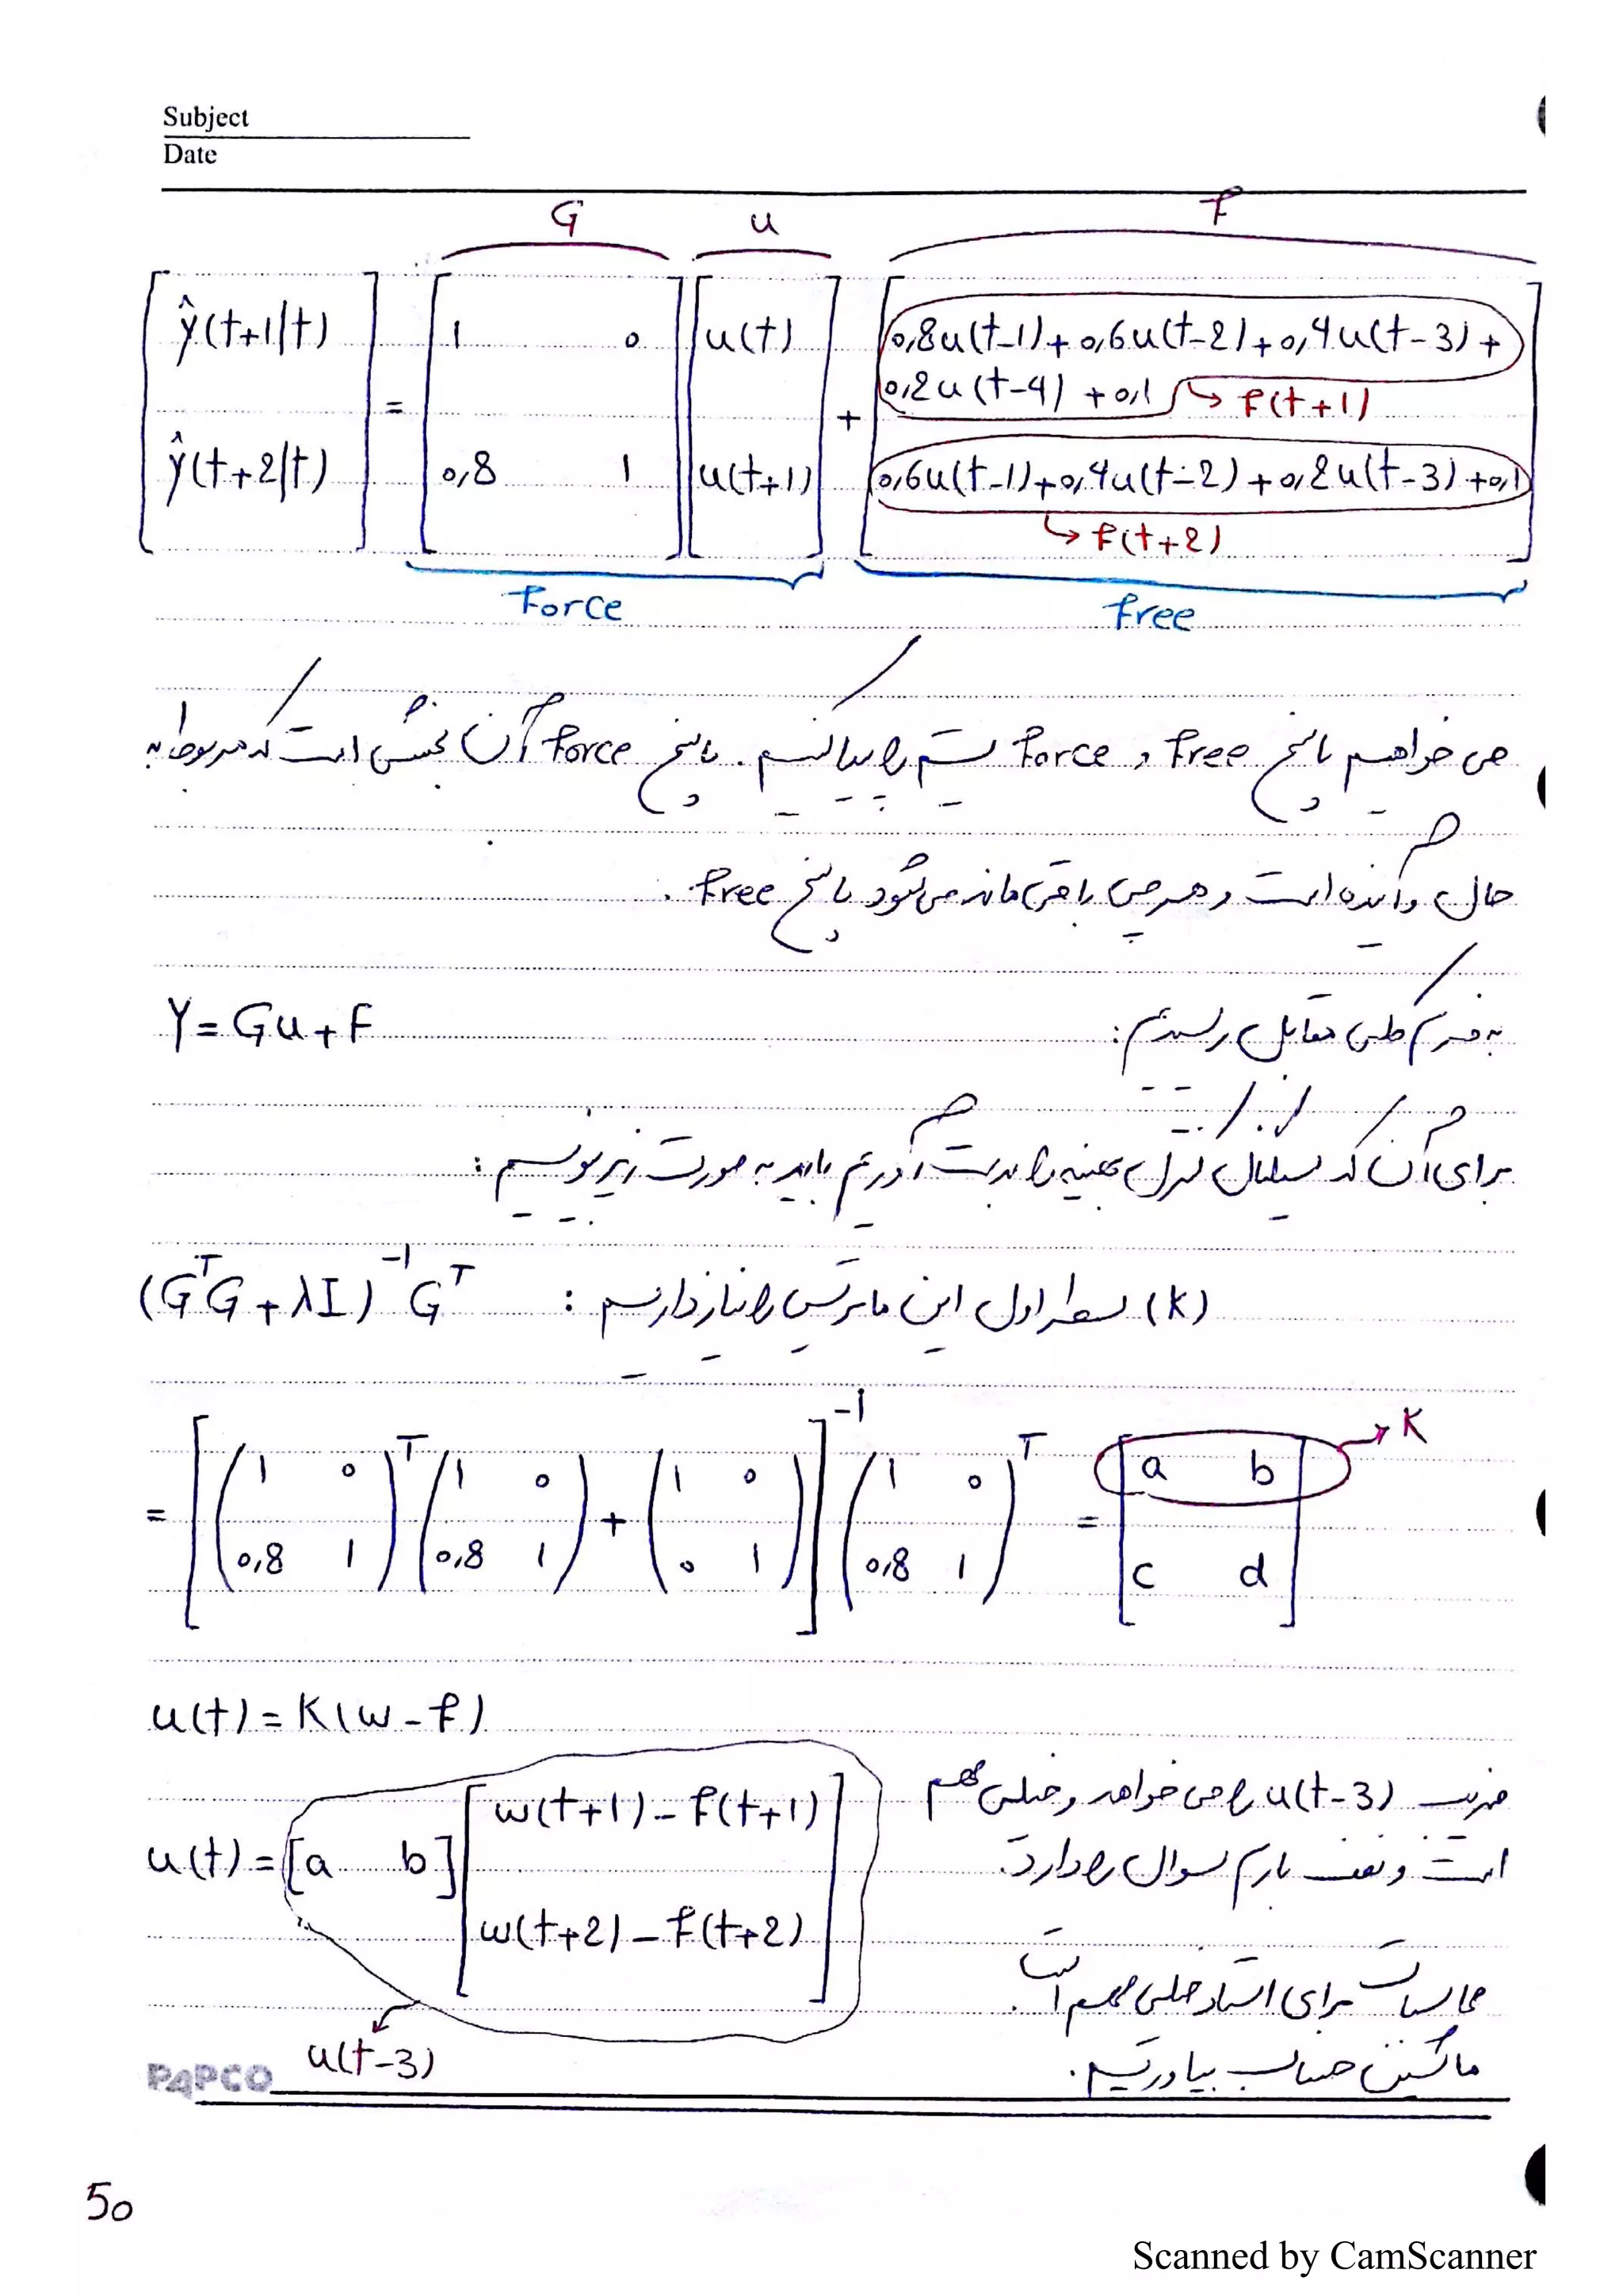 Subject
Date
G u F
ŷ(t+1|t) = 1 0 u(t) + 0,8u(t-1)+0,6u(t-2)+0,4u(t-3)+
0,2u(t-4)+0,1 → f(t+1)
ŷ(t+2|t) 0,8 1 u(t+1) 0,6u(t-1)+0,4u(t-2)+0,2u(t-3)+0,1
→ f(t+2)
Force free
می خواهیم پاسخ free و force سیستم را پیدا کنیم. پاسخ force آن بخشی است که مربوط به
حال و آینده است و هرچی باقی مانده می شود پاسخ free.
به فرم کلی مقابل رسیدیم: Y=Gu+F
برای آن که سیگنال کنترل بهینه را بدست آوریم باید به صورت زیر بنویسیم:
(K) سطر اول این ماتریس را نیاز داریم: (GᵀG+λI)⁻¹Gᵀ
= [(1 0 0,8 1)ᵀ(1 0 0,8 1)+(1 0 0 1)]⁻¹(1 0 0,8 1)ᵀ = [a b c d] → K
u(t)=K(w-f)
u(t)=[a b][w(t+1)-f(t+1) w(t+2)-f(t+2)]
u(t-3)
ضریب u(t-3) را می خواهد و خیلی مهم
است و نصف بارم سوال را دارد.
محاسبات برای استاد خیلی مهم است
ماشین حساب بیاوریم.
PAPCO
50
Scanned by CamScanner